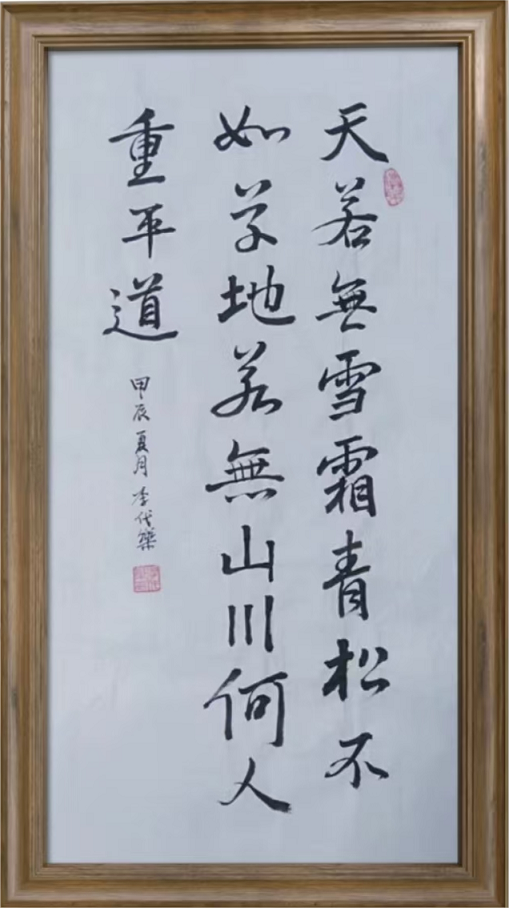 天若無雪霜青松不
如草地若無山川何人
重平道
甲辰夏月李代榮